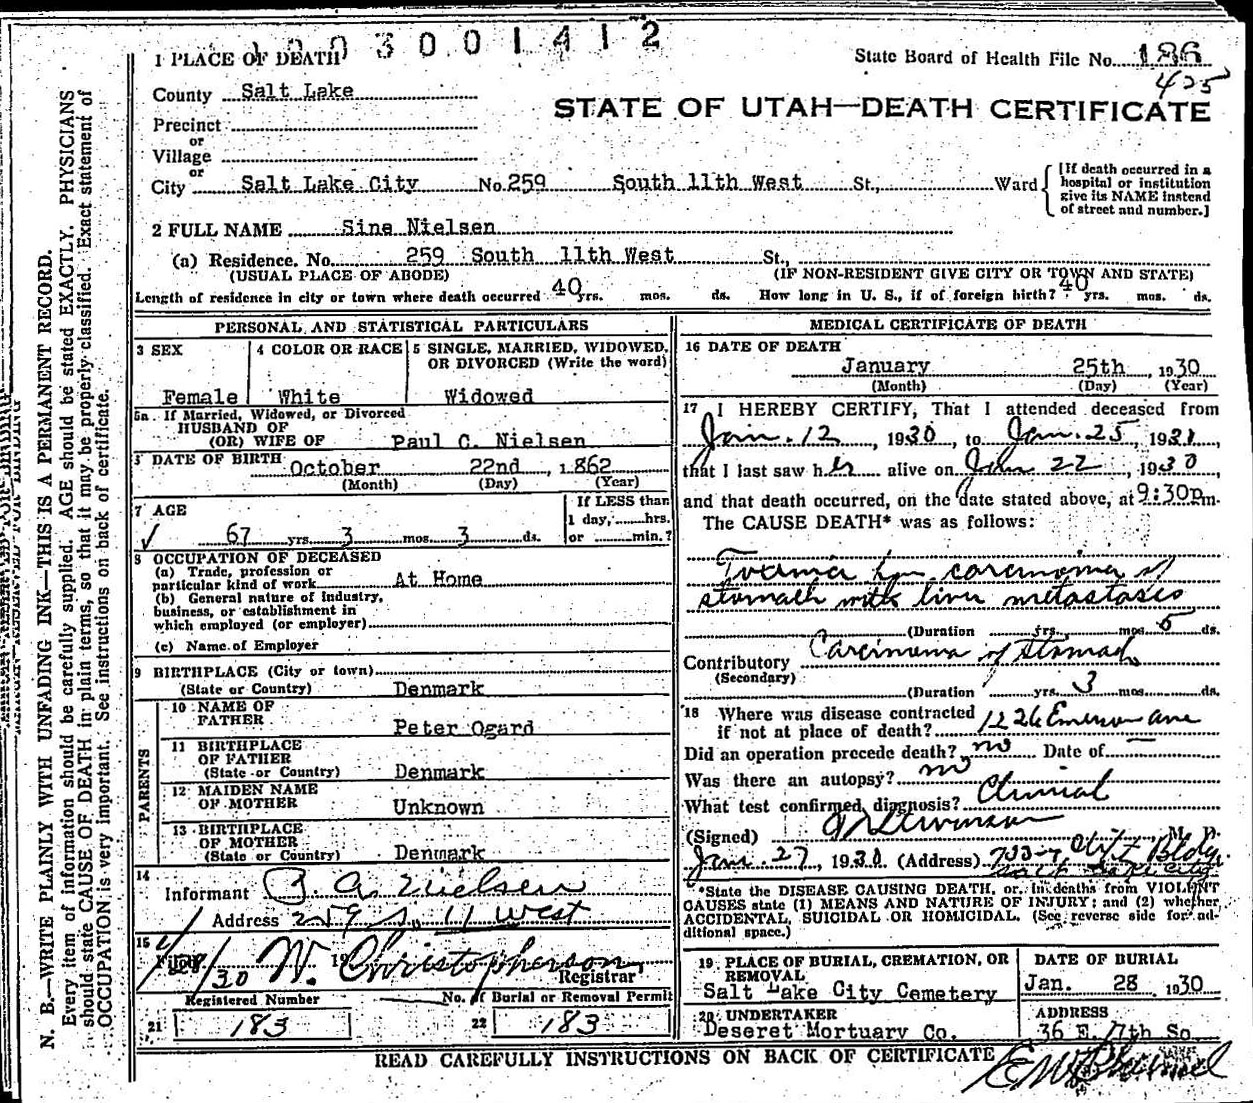 1003001412
1 PLACE OF DEATH
State Board of Health File No. 186
425
County Salt Lake
STATE OF UTAH—DEATH CERTIFICATE
Precinct
or
Village
or
City Salt Lake City No. 259 South 11th West St., Ward
[If death occurred in a
hospital or institution
give its NAME instead
of street and number.]
2 FULL NAME Sine Nielsen
(a) Residence. No. 259 South 11th West St.,
(USUAL PLACE OF ABODE) (IF NON-RESIDENT GIVE CITY OR TOWN AND STATE)
Length of residence in city or town where death occurred 40 yrs. mos. ds. How long in U. S., if of foreign birth? 40 yrs. mos. ds.
PERSONAL AND STATISTICAL PARTICULARS
3 SEX
Female
4 COLOR OR RACE
White
5 SINGLE, MARRIED, WIDOWED,
OR DIVORCED (Write the word)
Widowed
5a If Married, Widowed, or Divorced
HUSBAND OF
(OR) WIFE OF Paul C. Nielsen
DATE OF BIRTH October 22nd, 1862
(Month) (Day) (Year)
7 AGE
67 yrs. 3 mos. 3 ds.
If LESS than
1 day, hrs.
or min.?
8 OCCUPATION OF DECEASED
(a) Trade, profession or
particular kind of work At Home
(b) General nature of industry,
business, or establishment in
which employed (or employer)
(c) Name of Employer
9 BIRTHPLACE (City or town)
(State or Country) Denmark
PARENTS
10 NAME OF
FATHER Peter Ogard
11 BIRTHPLACE
OF FATHER
(State or Country) Denmark
12 MAIDEN NAME
OF MOTHER Unknown
13 BIRTHPLACE
OF MOTHER
(State or Country) Denmark
14
Informant P. A. Nielsen
Address 259 S. 11 West
15
Filed 1/28/30 19 W. Christopherson
Registrar
Registered Number
21 183
No. of Burial or Removal Permit
22 183
MEDICAL CERTIFICATE OF DEATH
16 DATE OF DEATH
January 25th, 1930
(Month) (Day) (Year)
17 I HEREBY CERTIFY, That I attended deceased from
Jan. 12, 1930, to Jan. 25, 1930,
that I last saw her alive on Jan 22, 1930
and that death occurred, on the date stated above, at 9:30 p m.
The CAUSE DEATH* was as follows:
Toxemia from carcinoma of
stomach with liver metastasis
(Duration yrs. mos. 5 ds.
Contributory Carcinoma of stomach
(Secondary)
(Duration yrs. 3 mos. ds.
18 Where was disease contracted
if not at place of death? 1226 Emerson ave
Did an operation precede death? no Date of —
Was there an autopsy? no
What test confirmed diagnosis? Clinical
(Signed) M. D.
Jan. 27, 1930 (Address) Clift Bldg.
Salt Lake City
*State the DISEASE CAUSING DEATH, or, in deaths from VIOLENT
CAUSES state (1) MEANS AND NATURE OF INJURY; and (2) whether
ACCIDENTAL, SUICIDAL OR HOMICIDAL. (See reverse side for ad-
ditional space.)
19 PLACE OF BURIAL, CREMATION, OR
REMOVAL
Salt Lake City Cemetery
DATE OF BURIAL
Jan. 28 1930
20 UNDERTAKER
Deseret Mortuary Co.
ADDRESS
36 E. 7th So.
READ CAREFULLY INSTRUCTIONS ON BACK OF CERTIFICATE
N. B.—WRITE PLAINLY WITH UNFADING INK—THIS IS A PERMANENT RECORD.
Every item of information should be carefully supplied. AGE should be stated EXACTLY. PHYSICIANS
should state CAUSE OF DEATH in plain terms, so that it may be properly classified. Exact statement of
OCCUPATION is very important. See instructions on back of certificate.